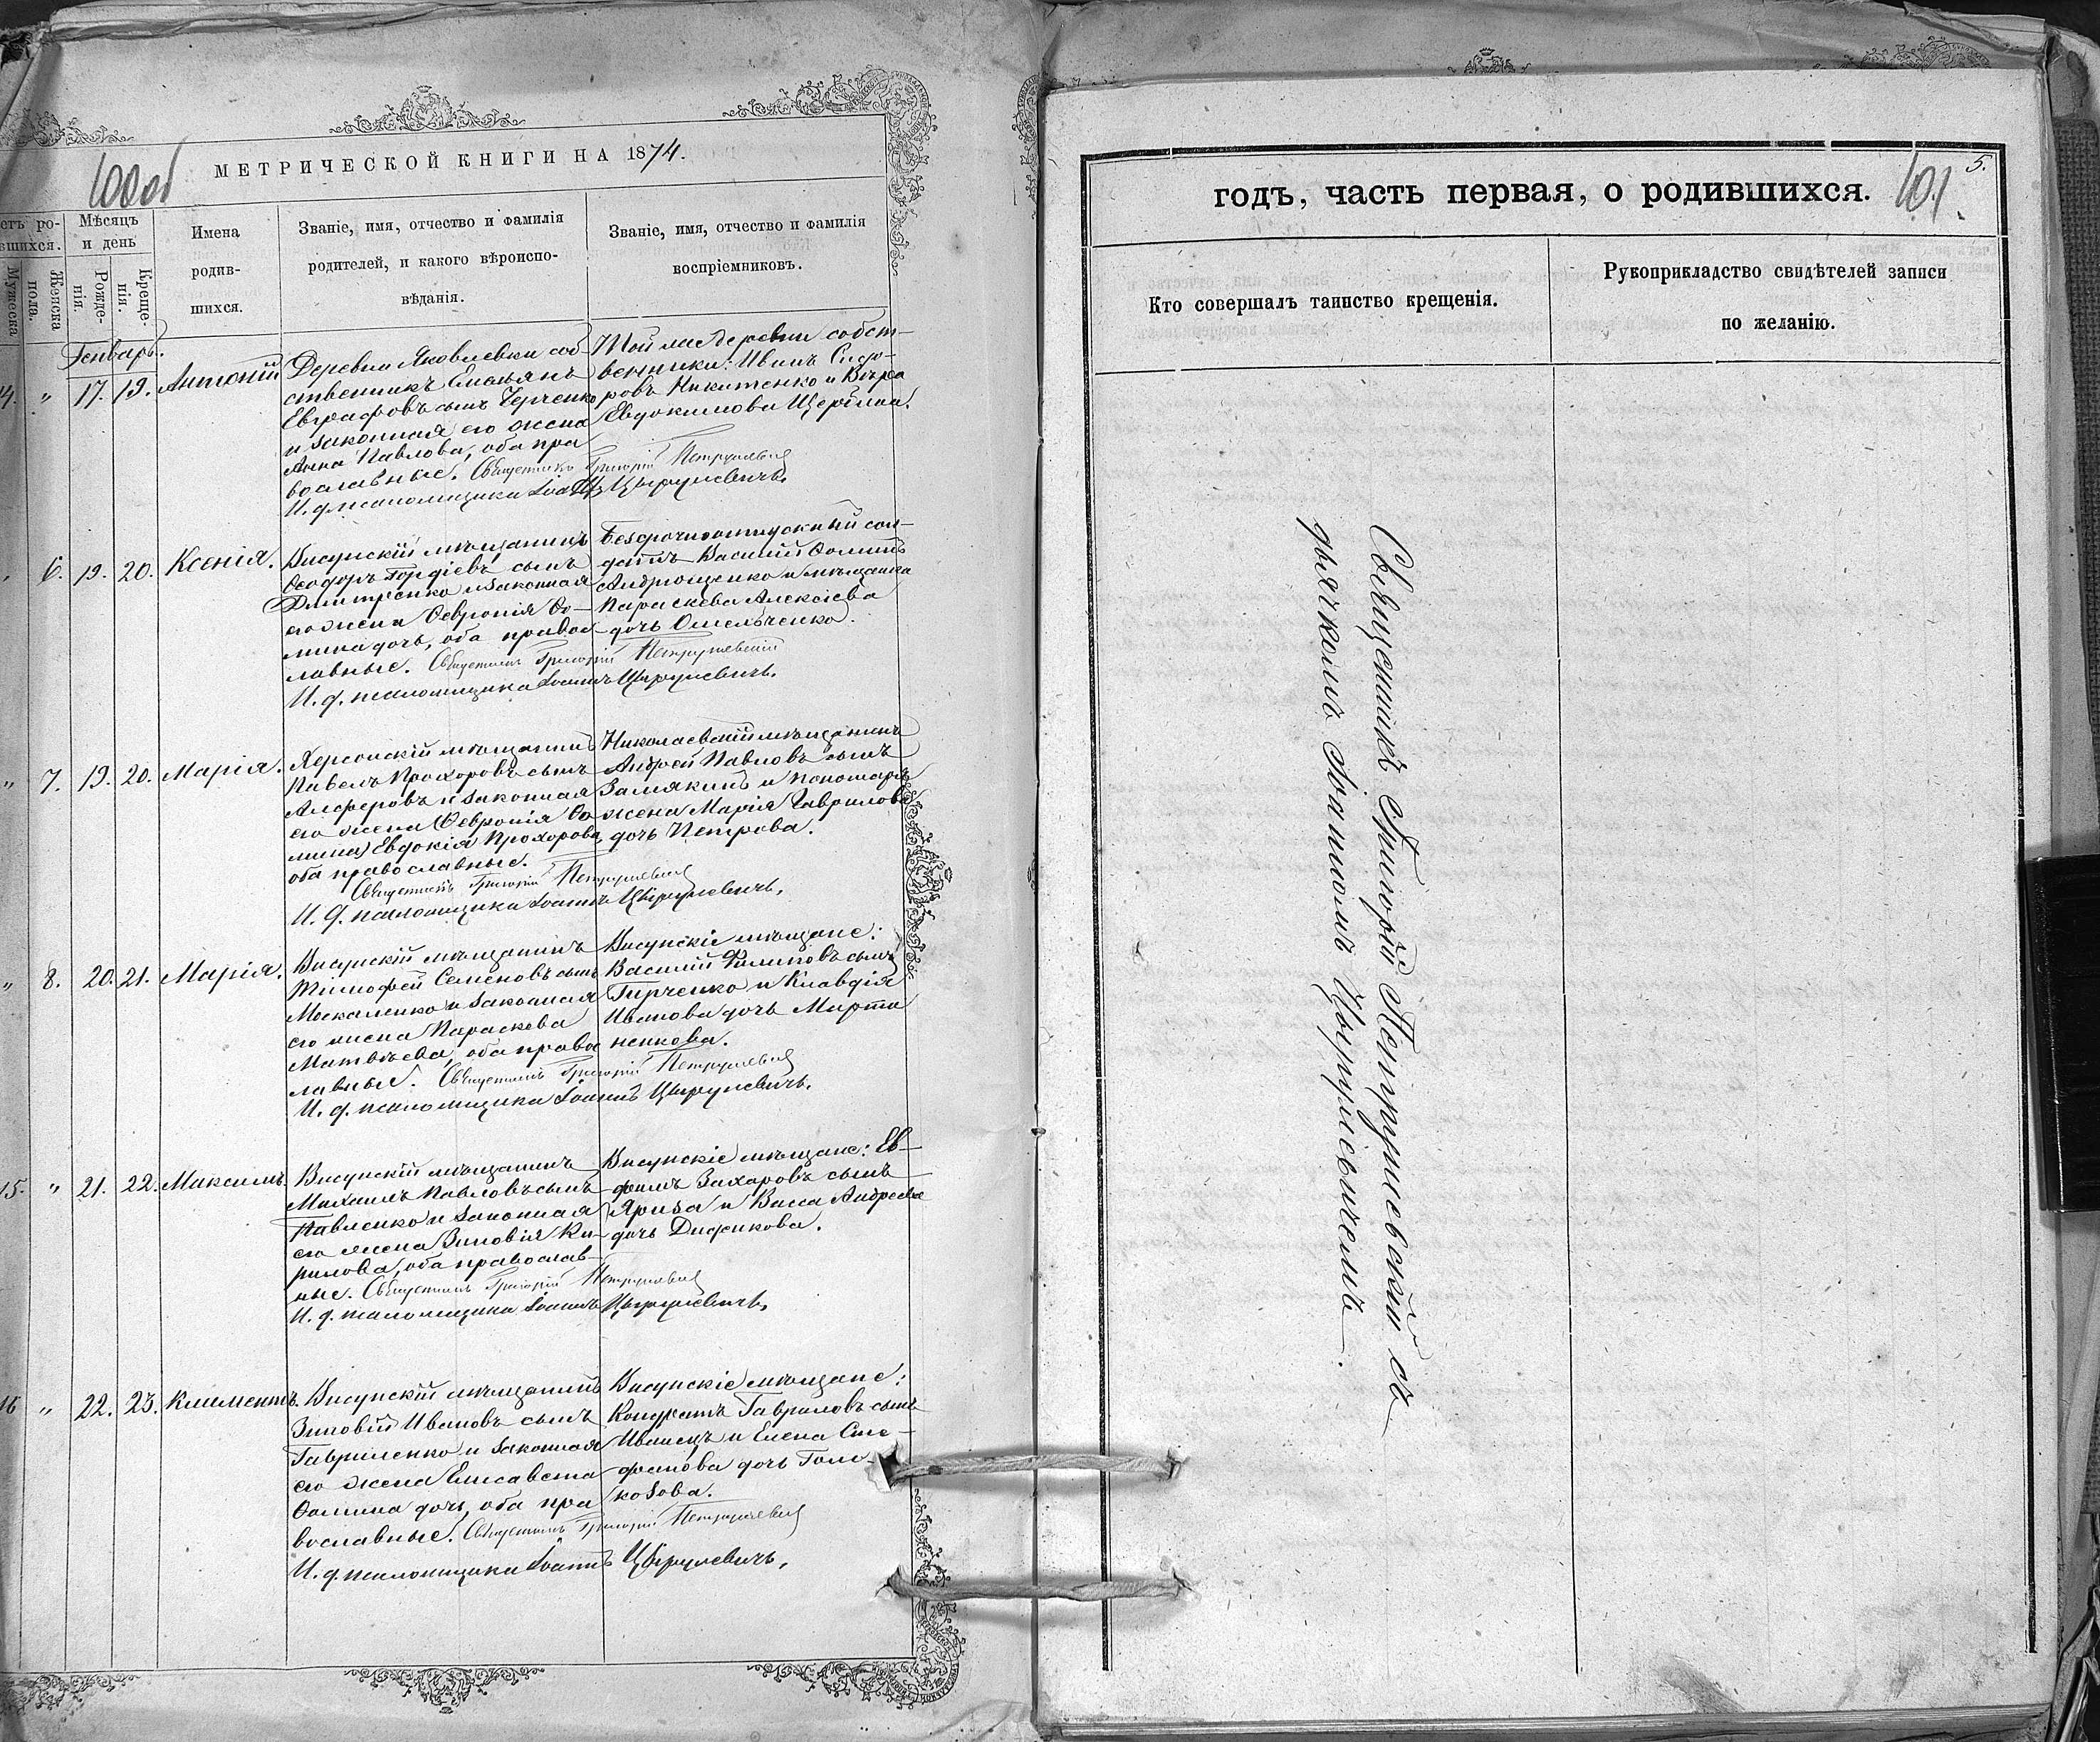 100об
МЕТРИЧЕСКОЙ КНИГИ НА 1874.
Мѣсяцъ и день
Рожде-нія.
Креще-нія.
Мужеска
Женска
пола.
Имена родив-шихся.
Званіе, имя, отчество и фамилія родителей, и какого вѣроиспо-вѣданія.
Званіе, имя, отчество и фамилія воспріемниковъ.
Генварь.
14. " 17. 19. Антоній
Деревни Яковлевки соб
ственникъ Емельянъ
Евграфовъ сынъ
и законная его жена
Анна Павлова, оба пра
вославные. Священникъ Григорій Петрушевскій
И. д. псаломщика Іоаннъ Цырулевичъ.
Той же деревни собст-
венники: Иванъ Сидо-
ровъ Никитенко и Вѣра
Евдокимова
" 6. 19. 20. Ксенія.
Висунскій мѣщанинъ
Ѳеодоръ Гордіевъ сынъ
Дмитренко и законная
его жена Ѳевронія Ѳо-
мина дочь, оба правос
лавные. Священникъ Григорій Петрушевскій
И. д. псаломщика Іоаннъ Цырулевичъ.
Безсрочноотпускный сол-
датъ Василій Ѳоминъ
Андрющенко и мѣщанка
Параскева Алексіева
дочь Омельченко.
" 7. 19. 20. Марія.
Херсонскій мѣщанинъ
Павелъ Прохоровъ сынъ
Алферовъ и законная
его жена (Ѳевронія Ѳо-
мина) Евдокія Прохорова,
оба православные.
Священникъ Григорій Петрушевскій
И. д. псаломщика Іоаннъ Цырулевичъ.
Николаевскій мѣщанинъ
Андрей Павловъ сынъ
Замякинъ и пономаря
жена Марія Гаврилова
дочь Петрова.
" 8. 20. 21. Марія.
Висунскій мѣщанинъ
Тимофей Семеновъ сынъ
Москаленко и законная
его жена Параскева
Матвѣева, оба правос
лавные. Священникъ Григорій Петрушевскій
И. д. псаломщика Іоаннъ Цырулевичъ.
Висунскіе мѣщане:
Василій Филиповъ сынъ
Гирченко и Клавдія
Иванова дочь Марты
ненкова.
15. " 21. 22. Максимъ.
Висунскій мѣщанинъ
Михаилъ Павловъ сынъ
Павленко и законная
его жена Зиновія Ки-
рилова, оба православ-
ные. Священникъ Григорій Петрушевскій
И. д. псаломщика Іоаннъ Цырулевичъ.
Висунскіе мѣщане: Ев-
фимъ Захаровъ сынъ
Яриза и Васса Андреева
дочь Дидикова.
16 " 22. 23. Климентъ.
Висунскій мѣщанинъ
Зиновій Ивановъ сынъ
Гавриленко и законная
его жена Елисавета
Ѳомина дочь, оба пра
вославные. Священникъ Григорій Петрушевскій
И. д. псаломщика Іоаннъ Цырулевичъ.
Висунскіе мѣщане:
Кондратъ Гавриловъ сынъ
Иванецъ и Елена Сте-
фанова дочь Голо-
козова.
5.
101
годъ, часть первая, о родившихся.
Кто совершалъ таинство крещенія.
Рукоприкладство свидѣтелей записи по желанію.
Священникъ Григорій Петрушевскій съ
дьячкомъ Іоанномъ Цырулевичемъ.